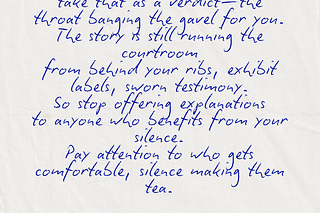 take that as a verdict—the
throat banging the gavel for you.
The story is still running the
courtroom
from behind your ribs, exhibit
labels, sworn testimony.
So stop offering explanations
to anyone who benefits from your
silence.
Pay attention to who gets
comfortable, silence making them
tea.